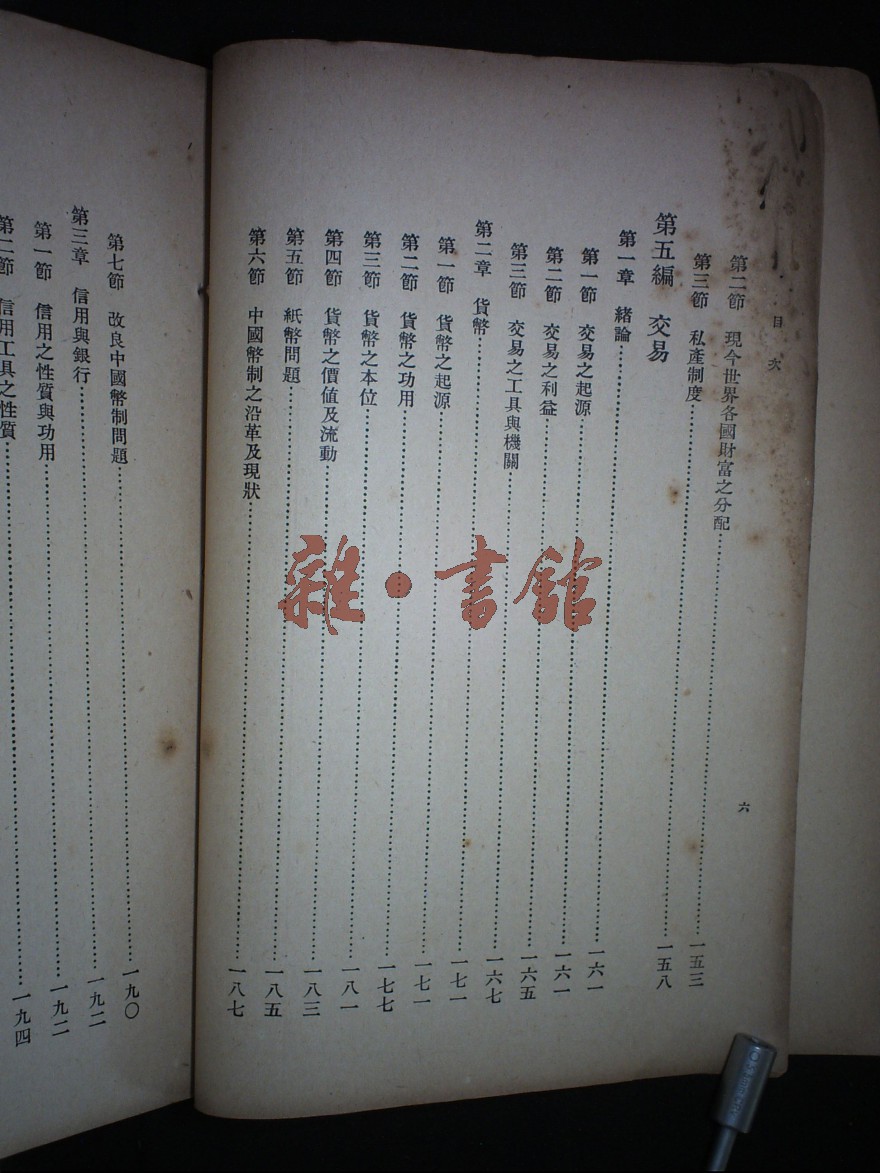 目次
六
第二節 現今世界各國財富之分配……一五三
第三節 私產制度……一五八
第五編 交易
第一章 緒論……一六一
第一節 交易之起源……一六一
第二節 交易之利益……一六五
第三節 交易之工具與機關……一六七
第二章 貨幣……一七一
第一節 貨幣之起源……一七一
第二節 貨幣之功用……一七七
第三節 貨幣之本位……一八一
第四節 貨幣之價值及流動……一八三
第五節 紙幣問題……一八五
第六節 中國幣制之沿革及現狀……一八七
第七節 改良中國幣制問題……一九〇
第三章 信用與銀行……一九二
第一節 信用之性質與功用……一九二
第二節 信用工具之性質……一九四
雜·書館